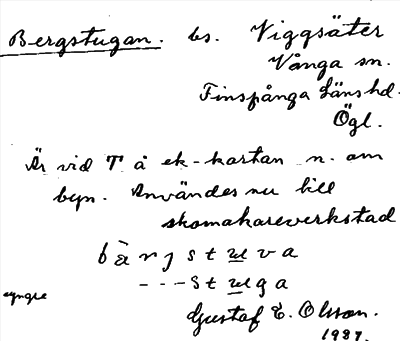 Bergstugan. bs. Viggsäter
Vånga sn.
Finspånga Länshd.
Ögl.
Är vid T å ek-kartan n. om
byn. Användes nu till
skomakareverkstad
bàrjstuva
---stuga
yngre
Gustaf E. Olsson.
1937.